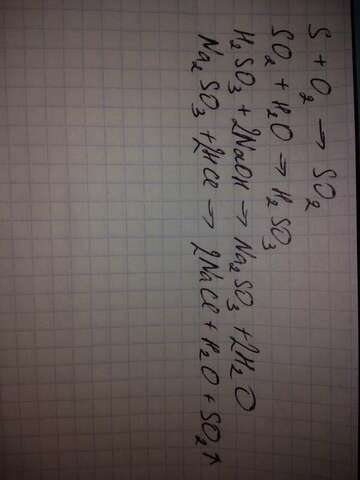 S + O₂ → SO₂
SO₂ + H₂O → H₂SO₃
H₂SO₃ + 2NaOH → Na₂SO₃ + 2H₂O
Na₂SO₃ + 2HCl → 2NaCl + H₂O + SO₂↑